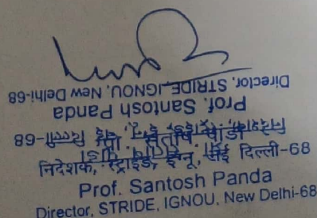 Director, STRIDE, IGNOU, New Delhi-68
Prof. Santosh Panda
दिल्ली-68
संतोष पांडा
निदेशक, स्ट्राइड, इग्नू, नई दिल्ली-68
Prof. Santosh Panda
Director, STRIDE, IGNOU, New Delhi-68